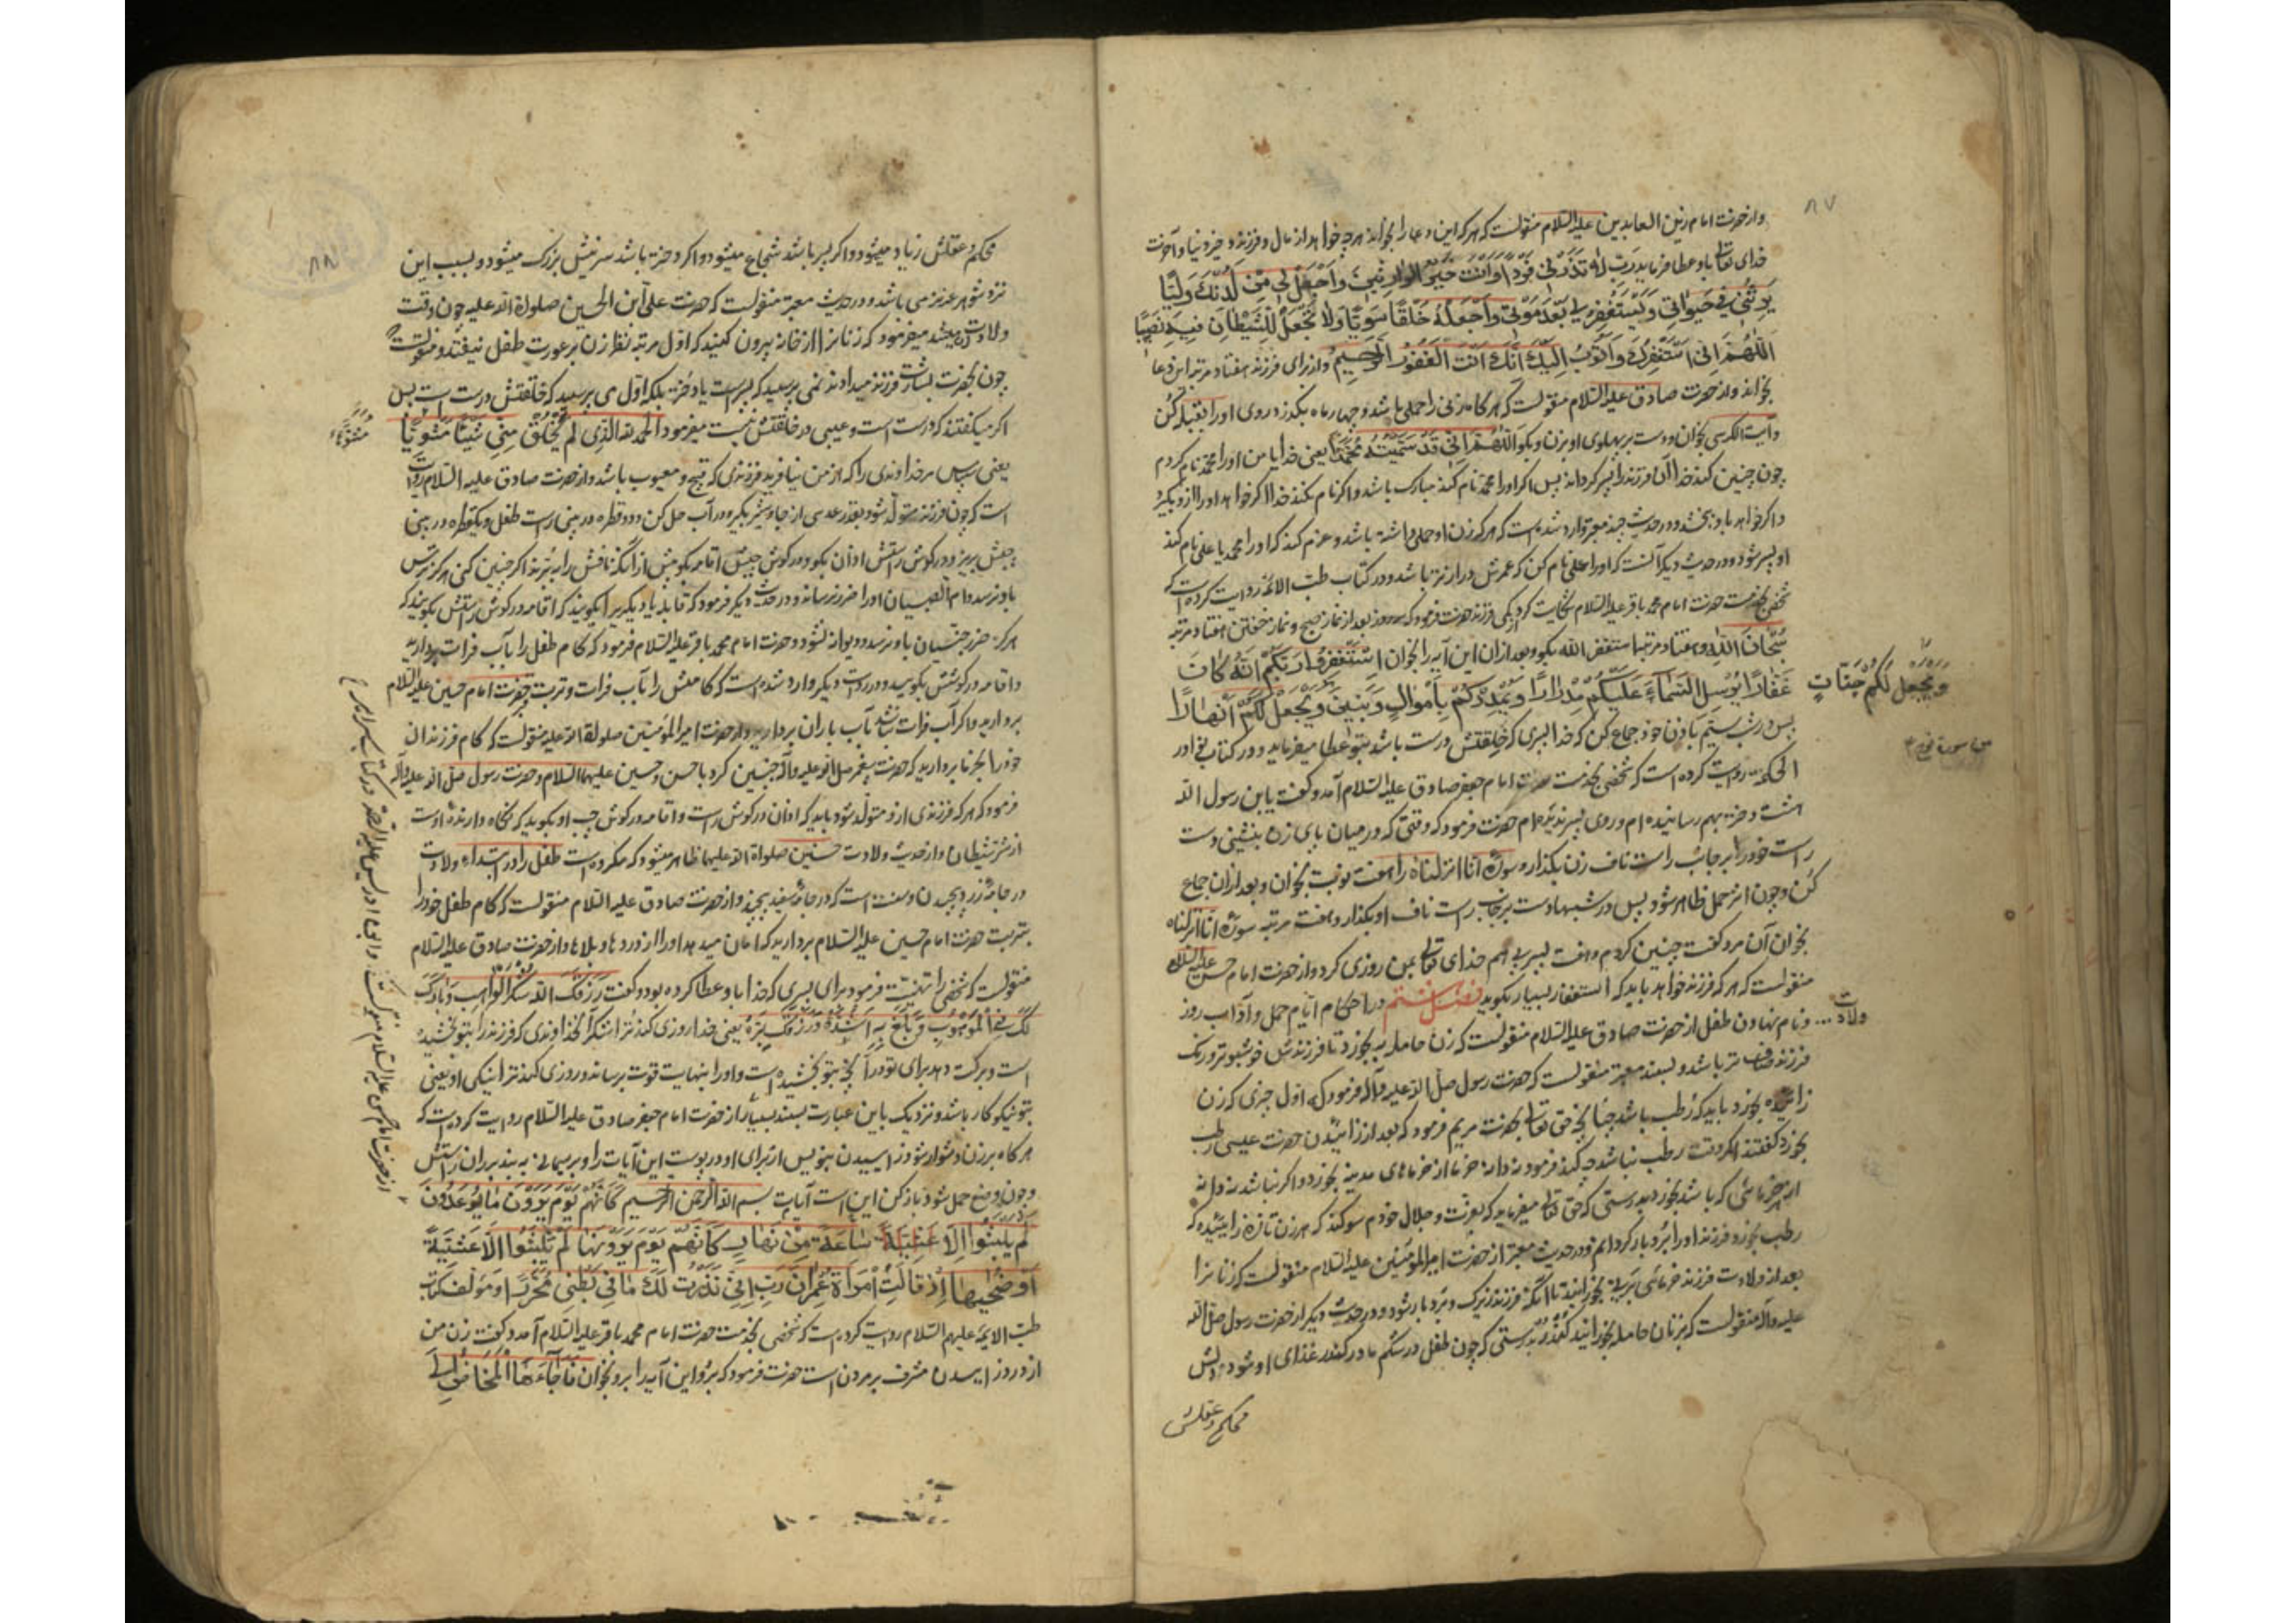 ۸۷
و از حضرت امام زین العابدین علیه السلام منقولست که هر که این دعا را بخواند هر چه خواهد از مال و فرزند و خیر دنیا و آخرت
خدای تعالی باو عطا فرماید رَبِّ لا تَذَرْنی فَرْدًا وَاَنْتَ خَیْرُ الوارِثینَ وَاجْعَلْ لی مِنْ لَدُنْكَ وَلِیًّا
یَرِثُنی فی حَیٰوتی وَیَسْتَغْفِرُ لی بَعْدَ مَوْتی وَاجْعَلْهُ خَلْقًا سَوِیًّا وَلا تَجْعَلْ لِلشَّیْطانِ فیهِ نَصیبًا
اَللّٰهُمَّ اِنّی اَسْتَغْفِرُكَ وَاَتُوبُ اِلَیْكَ اِنَّكَ اَنْتَ الْغَفُورُ الرَّحِیمُ و از برای فرزند هفتاد مرتبه این دعا
بخواند و از حضرت صادق علیه السلام منقولست که هر گاه زنی را حملی باشد و چهار ماه بگذرد روی او را بقبله کن
و آیت الکرسی بخوان و دست بر پهلوی او بزن و بگو اَللّٰهُمَّ اِنّی قَدْ سَمَّیْتُهُ مُحَمَّدًا یعنی خدایا من او را محمد نام کردم
چون چنین کند خدا آن فرزند را پسر گرداند پس اگر او را محمد نام کند مبارک باشد و اگر نام نکند خدا اگر خواهد او را از او بگیرد
و اگر خواهد باو ببخشد و در حدیث چند معتبر وارد شده است که هر که زن او حملی داشته باشد و عزم کند که او را محمد یا علی نام کند
او پسر شود و در حدیث دیگر آنست که او را علی نام کن که عمرش درازتر باشد و در کتاب طب الائمه روایت کرده است که
شخصی بخدمت حضرت امام محمد باقر علیه السلام شکایت کرد از کمی فرزند حضرت فرمود که سه روز بعد از نماز صبح و نماز خفتن هفتاد مرتبه
سُبْحانَ اللّٰهِ و هفتاد مرتبه استغفر الله بگو و بعد از آن این آیه را بخوان اِسْتَغْفِرُوا رَبَّکُمْ اِنَّهُ کانَ
غَفّارًا یُرْسِلِ السَّمآءَ عَلَیْکُمْ مِدْرارًا وَیُمْدِدْکُمْ بِاَمْوالٍ وَبَنینَ وَیَجْعَلْ لَکُمْ اَنْهارًا
وَیَجْعَلْ لَکُمْ جَنّاتٍ
من سورة نوح
پس در شب سیم با زن خود جماع کن که خدا پسری که خلقتش درست باشد بتو عطا میفرماید و در کتاب نوادر
الحکمة روایت کرده است که شخصی بخدمت حضرت امام جعفر صادق علیه السلام آمد و گفت یا بن رسول الله
هشت دختر بهم رسانیده ام و روی پسر ندیده ام حضرت فرمود که وقتی که در میان پای زن بنشینی دست
راست خود را بر جانب راست ناف زن بگذار و سوره انا انزلناه را هفت نوبت بخوان و بعد از آن جماع
کن و چون اثر حمل ظاهر شود پس در شبها دست بر جانب راست ناف او بگذار و هفت مرتبه سوره انا انزلناه
بخوان آن مرد گفت چنین کردم و هفت پسر پی هم خدای تعالی بمن روزی کرد و از حضرت امام حسن علیه السلام
منقولست که هر که فرزند خواهد باید که استغفار بسیار بگوید فصل ششم در احکام ایام حمل و آداب روز
ولادت و نام نهادن طفل از حضرت صادق علیه السلام منقولست که زن حامله به بخورد تا فرزندش خوشبوتر و رنگ
فرزند صاف تر باشد و بسند معتبر منقولست که حضرت رسول صلی الله علیه و آله فرمود که اول چیزی که زن
زائیده بخورد باید که رطب باشد چنانچه حق تعالی بحضرت مریم فرمود که بعد از زائیدن حضرت عیسی رطب
بخورد گفتند اگر وقت رطب نباشد چه کند فرمود نه دانه خرما از خرماهای مدینه بخورد و اگر نباشد نه دانه
از خرمائی که باشد بخورد بدرستی که حق تعالی میفرماید که بعزت و جلال خودم سوگند که هر زن تازه زائیده که
رطب بخورد فرزند او را بردبار گردانم و در حدیث معتبر از حضرت امیر المؤمنین علیه السلام منقولست که زنانرا
بعد از ولادت فرزند خرمای برنی بخورانید تا آنکه فرزند زیرک و بردبار شود و در حدیث دیگر از حضرت رسول صلی الله
علیه و آله منقولست که بزنان حامله بخورانید کندر بدرستی که چون طفل در شکم مادر کندر غذای او شود دلش
محکم و عقلش
۸۸
محکم و عقلش زیاد میشود و اگر پسر باشد شجاع میشود و اگر دختر باشد سرینش بزرک میشود و بسبب این
نزد شوهر عزیز می باشد و در حدیث معتبر منقولست که حضرت علی ابن الحسین صلوات الله علیه چون وقت
ولادت میشد میفرمود که زنانرا از خانه بیرون کنید که اول مرتبه نظر زن بر عورت طفل نیفتد و منقولست که
چون بحضرت بشارت فرزند میدادند نمی پرسید که پسر است یا دختر بلکه اول می پرسید که خلقتش درست است پس
اگر میگفتند که درست است و عیبی در خلقتش نیست میفرمود الحمد لله الَّذِی لَمْ یَخْلُقْ مِنّی شَیْئًا مُشَوَّهًا
یعنی سپاس مر خداوندی را که از من نیافرید فرزندی که قبیح و معیوب باشد و از حضرت صادق علیه السلام روایت
است که چون فرزند متولد شود بقدر عدسی از جاوشیر بگیر و در آب حل کن و دو قطره در بینی راست طفل و یکقطره در بینی
چپش بریز و در گوش راستش اذان بگو و در گوش چپش اقامه بگو پیش از آنکه نافش را ببرند اگر چنین کنی هرگز ترس
باو نرسد و ام الصبیان او را ضرر نرساند و در حدیث دیگر فرمود که قابله یا دیگری را بگویند که اقامه در گوش راستش بگویند که
هرگز ضرر جنیان باو نرسد و دیوانه نشود و حضرت امام محمد باقر علیه السلام فرمود که کام طفل را بآب فرات بردارید
و اقامه در گوشش بگویید و در روایت دیگر وارد شده است که کامش را بآب فرات و تربت حضرت امام حسین علیه السلام
بردارید و اگر آب فرات نباشد بآب باران بردارید و از حضرت امیر المؤمنین صلوات الله علیه منقولست که کام فرزندان
خود را بخرما بردارید که حضرت پیغمبر صلی الله علیه و آله چنین کرد با حسن و حسین علیهما السلام و حضرت رسول صلی الله علیه و آله
فرمود که هر که فرزندی از او متولد شود باید که اذان در گوش راست و اقامه در گوش چپ او بگوید که نگاه دارنده اوست
از شر شیطان و از حدیث ولادت حسنین صلوات الله علیهما ظاهر میشود که مکروه است طفل را در ابتداء ولادت
در جامه زرد پیچیدن و سنت است که در جامه سفید پیچند و از حضرت صادق علیه السلام منقولست که کام طفل خود را
بتربت حضرت امام حسین علیه السلام بردارید که امان میدهد او را از دردها و بلاها و از حضرت صادق علیه السلام
منقولست که شخصی را تهنیت فرمود برای پسری که خدا باو عطا کرده بود و گفت رَزَقَكَ اللهُ شُكْرَ الْواهِبِ وَبارَكَ
لَكَ فِی الْمَوْهُوبِ وَبَلَغَ بِهِ اَشُدَّهُ وَرَزَقَكَ بِرَّهُ یعنی خدا روزی کند ترا شکر آن خداوندی که فرزند را بتو بخشیده
است و برکت دهد برای تو در آنچه بتو بخشیده است و او را بنهایت قوت برساند و روزی کند ترا نیکی او یعنی
بتو نیکو کار باشد و نزدیک باین عبارت بسند بسیار از حضرت امام جعفر صادق علیه السلام روایت کرده است که
هر گاه بر زن دشوار شود زاییدن بنویس از برای او در پوست این آیات را و بریسمانی به بند بر ران راستش
و چون وضع حمل شود باز کن این است آیات بسم الله الرحمن الرحیم کَاَنَّهُمْ یَوْمَ یَرَوْنَ ما یُوعَدُونَ
لَمْ یَلْبَثُوا اِلّا ساعَةً مِنْ نَهارٍ کَاَنَّهُمْ یَوْمَ یَرَوْنَها لَمْ یَلْبَثُوا اِلّا عَشِیَّةً
اَوْ ضُحٰیها اِذْ قالَتِ امْرَاَةُ عِمْرانَ رَبِّ اِنّی نَذَرْتُ لَكَ ما فی بَطْنی مُحَرَّرًا و مؤلف کتاب
طب الایمه علیهم السلام روایت کرده است که شخصی بخدمت حضرت امام محمد باقر علیه السلام آمد و گفت زن من
از درد زاییدن مشرف بر مردن است حضرت فرمود که برو این آیه را برو بخوان فَاَجآءَهَا الْمَخاضُ اِلٰی